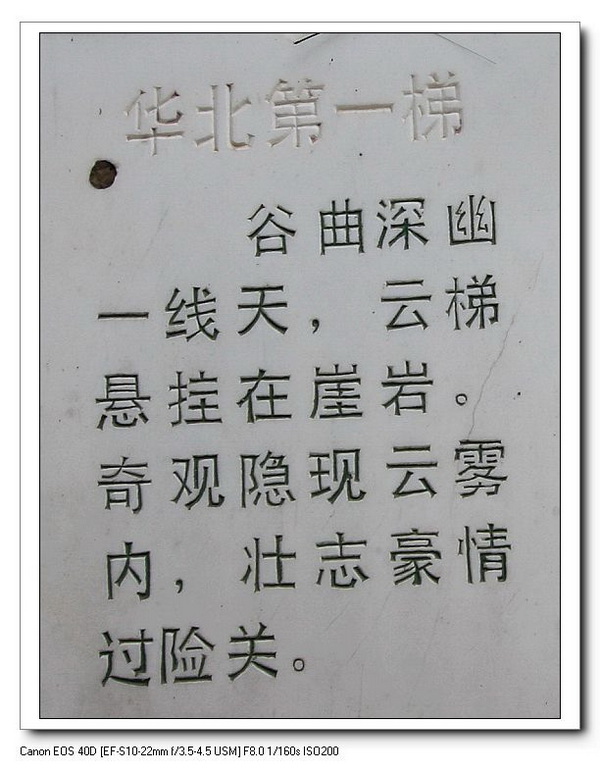 华北第一梯
谷曲深幽
一线天，云梯
悬挂在崖岩。
奇观隐现云雾
内，壮志豪情
过险关。
Canon EOS 40D [EF-S10-22mm f/3.5-4.5 USM] F8.0 1/160s ISO200